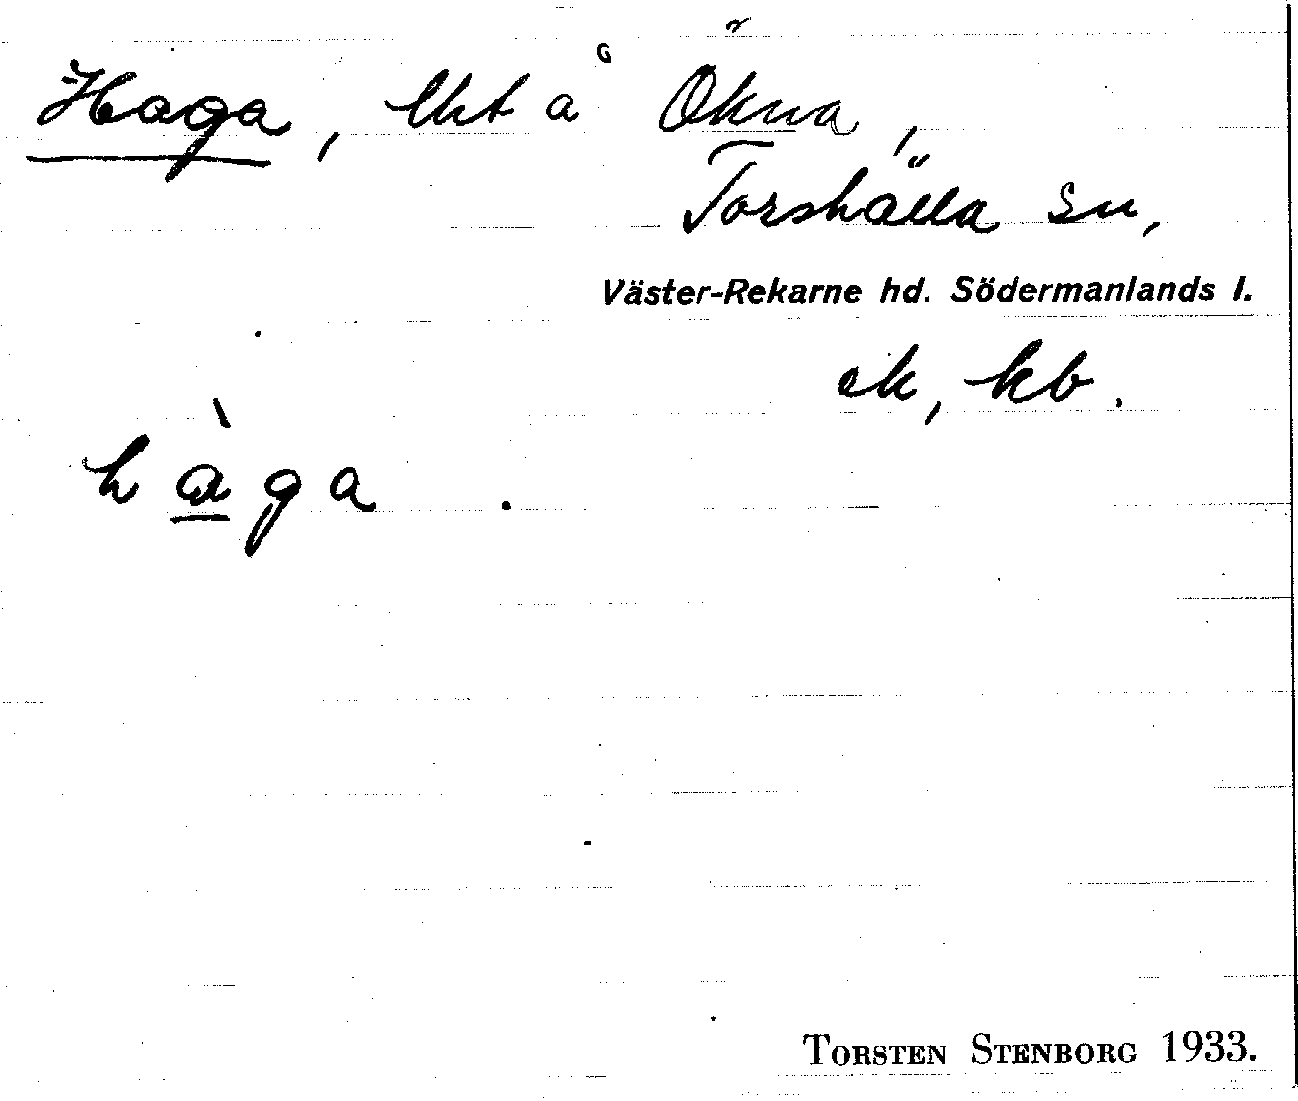 G
Haga, lht a Ökna,
Torshälla sn,
Väster-Rekarne hd. Södermanlands l.
ek, kb.
hàga.
TORSTEN STENBORG 1933.